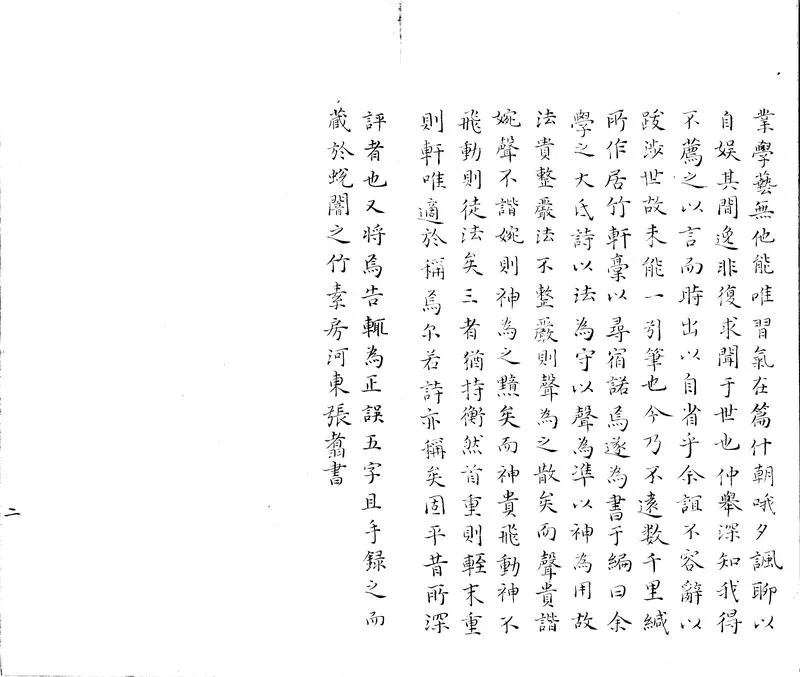 業學藝無他能唯習氣在篇什朝哦夕諷聊以
自娛其間逸非復求聞于世也仲舉深知我得
不薦之以言而時出以自省乎余誼不容辭以
跋涉世故未能一引筆也今乃不遠数千里緘
所作居竹軒藁以尋宿諾焉遂為書于編曰余
學之大氐詩以法為守以聲為準以神為用故
法貴整嚴法不整嚴則聲為之散矣而聲貴諧
婉聲不諧婉則神為之黯矣而神貴飛動神不
飛動則徒法矣三者猶持衡然首重則輊末重
則軒唯適於稱焉尔若詩亦稱矣固平昔所深
評者也又將焉告輒為正誤五字且手録之而
藏於蛻闇之竹素房河東張翥書
二